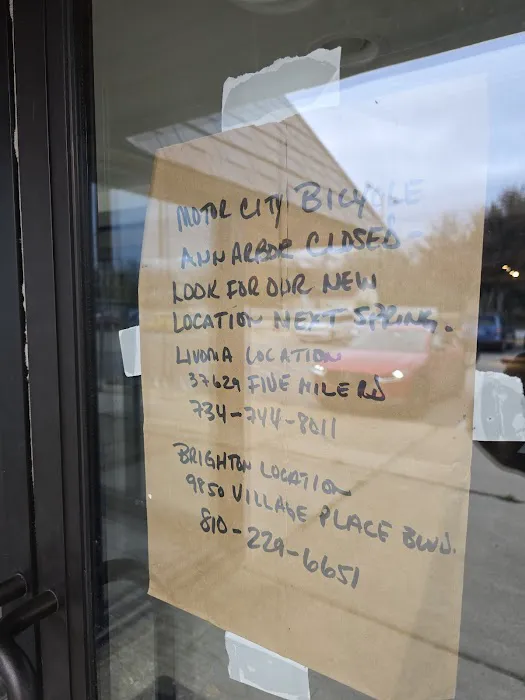 MOTOR CITY BICYCLE
ANN ARBOR CLOSED -
LOOK FOR OUR NEW
LOCATION NEXT SPRING.
LIVONIA LOCATION
37629 FIVE MILE RD
734-744-8011
BRIGHTON LOCATION
9850 VILLAGE PLACE BLVD.
810-229-6651